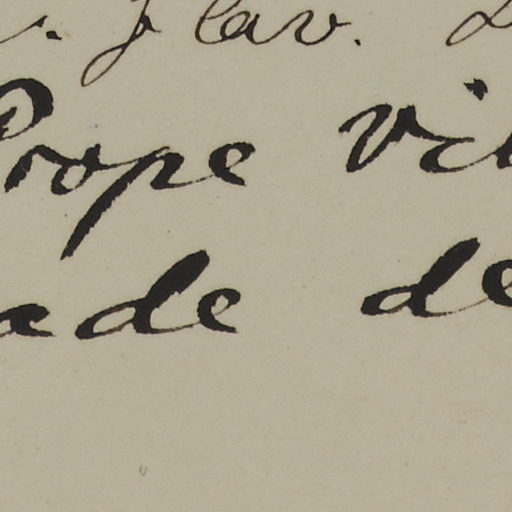 flav.
Prope vi
ade de